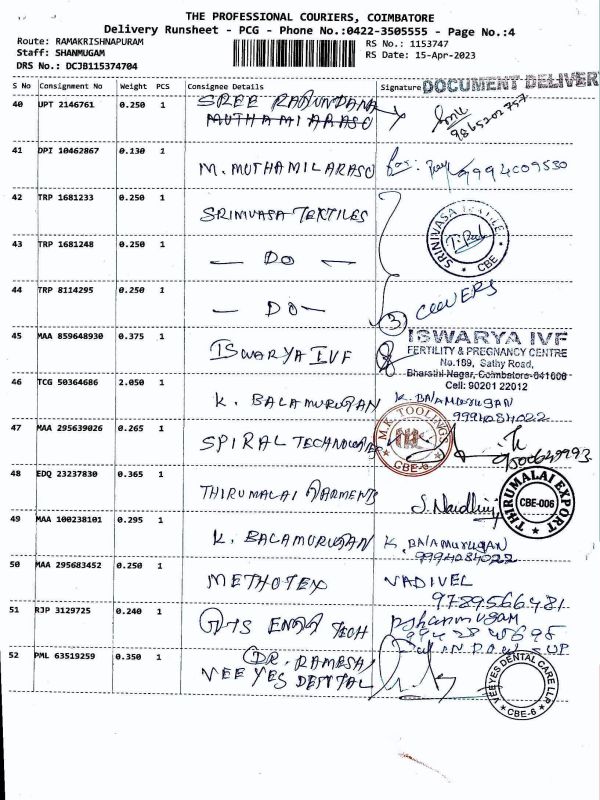 THE PROFESSIONAL COURIERS, COIMBATORE
Delivery Runsheet - PCG - Phone No.:0422-3505555 - Page No.:4
Route: RAMAKRISHNAPURAM RS No.: 1153747
Staff: SHANMUGAM RS Date: 15-Apr-2023
DRS No.: DCJB115374704
S No Consignment No Weight PCS Consignee Details Signature DOCUMENT DELIVER
40 UPT 2146761 0.250 1 SREE
MUTHAMILARASO 9865202757
41 DPI 10462867 0.130 1 M. MUTHAMILARASO 9994009530
42 TRP 1681233 0.250 1 SRINIVASA TEXTILES
SRINIVASA TEXTILE CBE
43 TRP 1681248 0.250 1 — DO —
44 TRP 8114295 0.250 1 — DO —
3 COOVERS
45 MAA 859648930 0.375 1 ISWARYA IVF
ISWARYA IVF
FERTILITY & PREGNANCY CENTRE
No.189, Sathy Road,
Bharathi Nagar, Coimbatore-641006
Cell: 90201 22012
46 TCG 50364686 2.050 1 K. BALAMURUGAN K. BALAMURUGAN
9994084022
47 MAA 295639026 0.265 1 SPIRAL TECHNOLOGIES
M.K TOOLINGS CBE-6
48 EDQ 23237830 0.365 1 THIRUMALAI GARMENTS
THIRUMALAI EXPORT CBE-006
49 MAA 100238101 0.295 1 K. BALAMURUGAN K. BALAMURUGAN
9994084022
50 MAA 295683452 0.250 1 METHOTEX VADIVEL
9789566481
51 RJP 3129725 0.240 1 ENGG TECH PShanmugam
52 PML 63519259 0.350 1 DR. RAMESH
VEE YES DENTAL
VEEYES DENTAL CARE LLP CBE-6